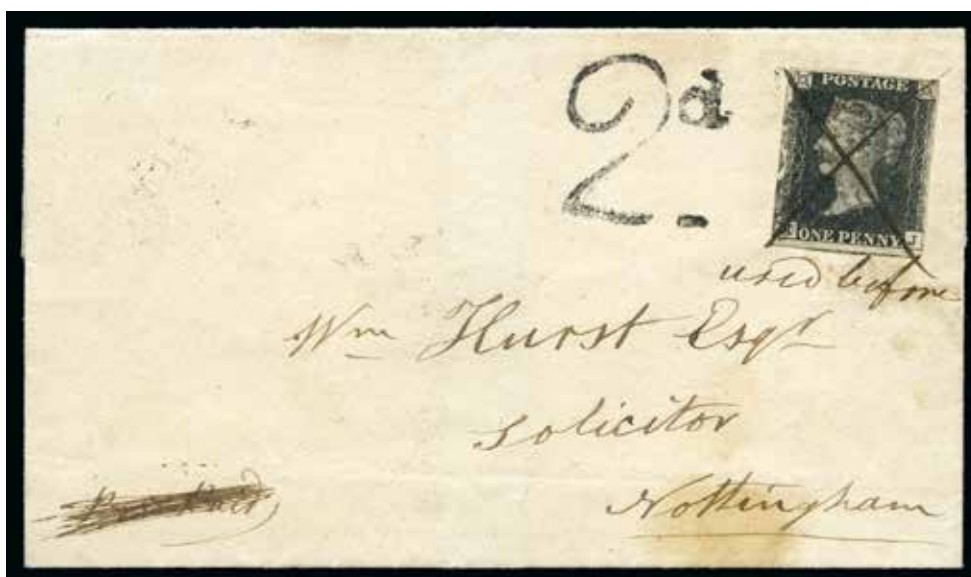 2d
POSTAGE
ONE PENNY J
used before
Wm Hurst Esqr
Solicitor
Nottingham